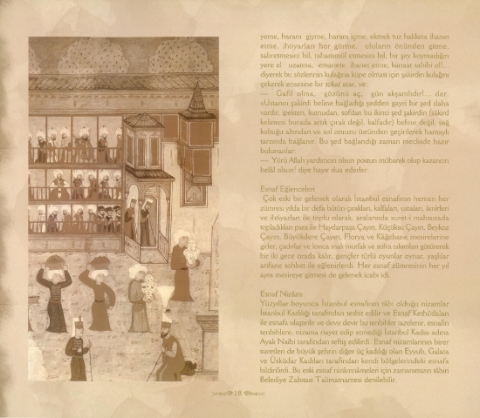 yeme, haram giyme, haram içme, ekmek tuz hakkına ihanet
etme, ihtiyarları hor görme, uluların önünden gitme,
sabretmesiz bil, tahammül etmesini bil, bir şey koymadığın
yere el uzatma, emanete ihanet etme, kanaat sahibi ol!...
diyerek bu sözlerinin kulağına küpe olması için şakirdin kulağını
çekerek ensesine bir tokat atar, ve:
— Gafil olma, gözünü aç, gün akşamlıdır!... der.
Ustanın şakirdi beline bağladığı şedden gayri bir şed daha
vardır; ipekten, kutnudan, softan bu ikinci şed şakirdin (şâkird
kelimesi burada artık çırak değil, kalfadır) beline değil, sağ
koltuğu altından ve sol omuzu üstünden geçirilerek hamayli
tarzında bağlanır. Bu şed bağlandığı zaman mecliste hazır
bulunanlar:
— Yürü Allah yardımcın olsun postun mübarek olup kazancın
helâl olsun! diye hayır dua ederler.
Esnaf Eğlenceleri
Çok eski bir gelenek olarak İstanbul esnafının hemen her
zümresi yılda bir defa bütün çırakları, kalfaları, ustaları, âmirleri
ve ihtiyarları ile toplu olarak, aralarında suretâ mahsusada
topladıkları para ile Haydarpaşa Çayırı, Küçüksu Çayırı, Beykoz
Çayırı, Büyükdere Çayırı, Florya ve Kâğıthane mesirelerine
gider, çadırlar ve lonca malı mutfak ve sofra takımları götürerek
bir iki gece orada kalır, gençler türlü oyunlar oynar, yaşlılar
arifane sohbet ile eğlenirlerdi. Her esnaf zümresinin her yıl
aynı mesireye gitmesi de gelenek icabı idi.
Esnaf Nizâmı
Yüzyıllar boyunca İstanbul esnafının tâbi olduğu nizamlar
İstanbul Kadılığı tarafından tesbit edilir ve Esnaf Kethüdaları
ile esnafa ulaştırılır ve devir devir bu tenbihler tazelenir, esnafın
tenbihlere, nizama riayet edip etmediği İstanbul Kadısı adına
Ayak Naibi tarafından teftiş edilirdi. Esnaf nizamlarının birer
suretleri de büyük şehrin diğer üç kadılığı olan Eyyub, Galata
ve Üsküdar Kadıları tarafından kendi bölgelerindeki esnafa
bildirilirdi. Bu eski esnaf nizamnameleri için zamanımızın tâbiri
Belediye Zabıtası Talimatnamesi denilebilir.
18